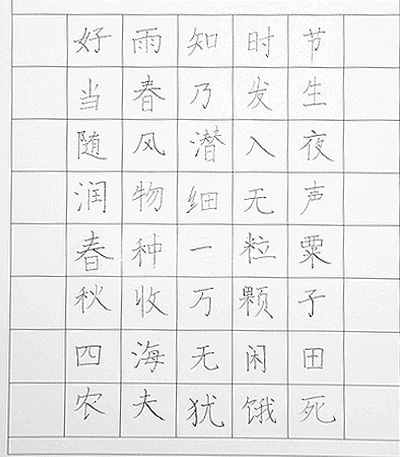 好雨知时节
当春乃发生
随风潜入夜
润物细无声
春种一粒粟
秋收万颗子
四海无闲田
农夫犹饿死